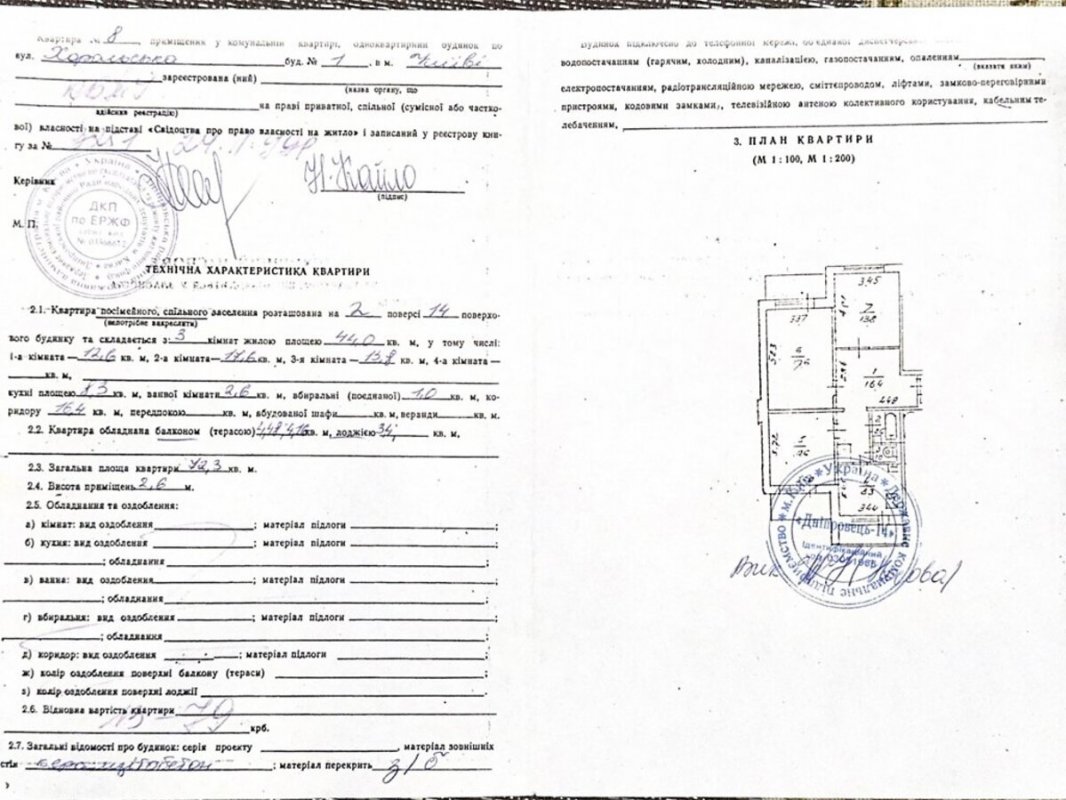 Квартира № 8 приміщених у комунальній квартирі, одноквартирний будинок по
вул. Хорольська буд. № 1, в м. Києві
зареєстрована (ний)
(назва органу, що
здійснив реєстрацію)
на праві приватної, спільної (сумісної або частко-
вої) власності на підставі «Свідоцтва про право власності на житло» і записаний у реєстрову кни-
гу за №
Керівник Н. Кайло
(підпис)
М. П.
ДКП
по ЕРЖФ
ТЕХНІЧНА ХАРАКТЕРИСТИКА КВАРТИРИ
2.1. Квартира посімейного, спільного заселення розташована на 2 поверсі 14 поверхо-
(непотрібне закреслити)
вого будинку та складається з: 3 кімнат жилою площею 44,0 кв. м, у тому числі:
1-а кімната— 12,6 кв. м, 2-а кімната— 17,6 кв. м, 3-я кімната — 13,8 кв. м, 4-а кімната —
кв. м,
кухні площею 8,3 кв. м, ванної кімнати 2,6 кв. м, вбиральні (поєднаної) 1,0 кв. м, ко-
ридору 16,4 кв. м, передпокою кв. м, вбудованої шафи кв. м, веранди кв. м.
2.2. Квартира обладнана балконом (терасою) кв. м, лоджією кв. м,
2.3. Загальна площа квартири 72,3 кв. м.
2.4. Висота приміщень 2,6 м.
2.5. Обладнання та оздоблення:
а) кімнат: вид оздоблення ; матеріал підлоги ;
б) кухня: вид оздоблення ; матеріал підлоги
; обладнання ;
в) ванна: вид оздоблення ; матеріал підлоги
; обладнання ;
г) вбиральня: вид оздоблення ; матеріал підлоги
; обладнання ;
д) коридор: вид оздоблення ; матеріал підлоги ;
ж) колір оздоблення поверхні балкону (тераси) ;
з) колір оздоблення поверхні лоджії
2.6. Відновна вартість квартири
крб.
2.7. Загальні відомості про будинок: серія проекту , матеріал зовнішніх
стін керамзітобетон ; матеріал перекрить з/б
Будинок підключено до телефонної мережі, об'єднаної диспетчерської
водопостачанням (гарячим, холодним), каналізацією, газопостачанням, опаленням
(вказати яким)
електропостачанням, радіотрансляційною мережею, сміттєпроводом, ліфтами, замково-переговірними
пристроями, кодовими замками, телевізійною антеною колективного користування, кабельним те-
лебаченням,
3. ПЛАН КВАРТИРИ
(М 1 : 100, М 1 : 200)
3,45
7
13,8
3,37
6
5,23
1
16,4
4,48
5
3,72
3,44
✶ Україна ✶ Державне комунальне підприємство ✶ м. Київ
«Дніпровець-14»
Ідентифікаційний